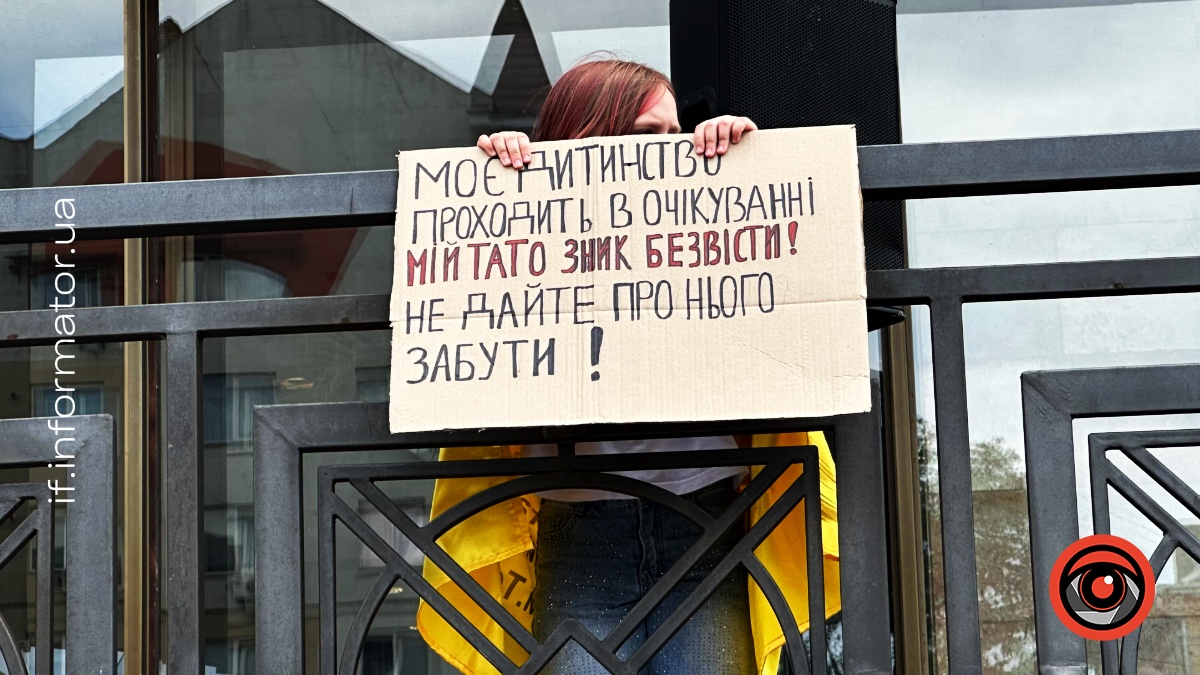 МОЄ ДИТИНСТВО
ПРОХОДИТЬ В ОЧІКУВАННІ
МІЙ ТАТО ЗНИК БЕЗВІСТИ!
НЕ ДАЙТЕ ПРО НЬОГО
ЗАБУТИ !
if.informator.ua